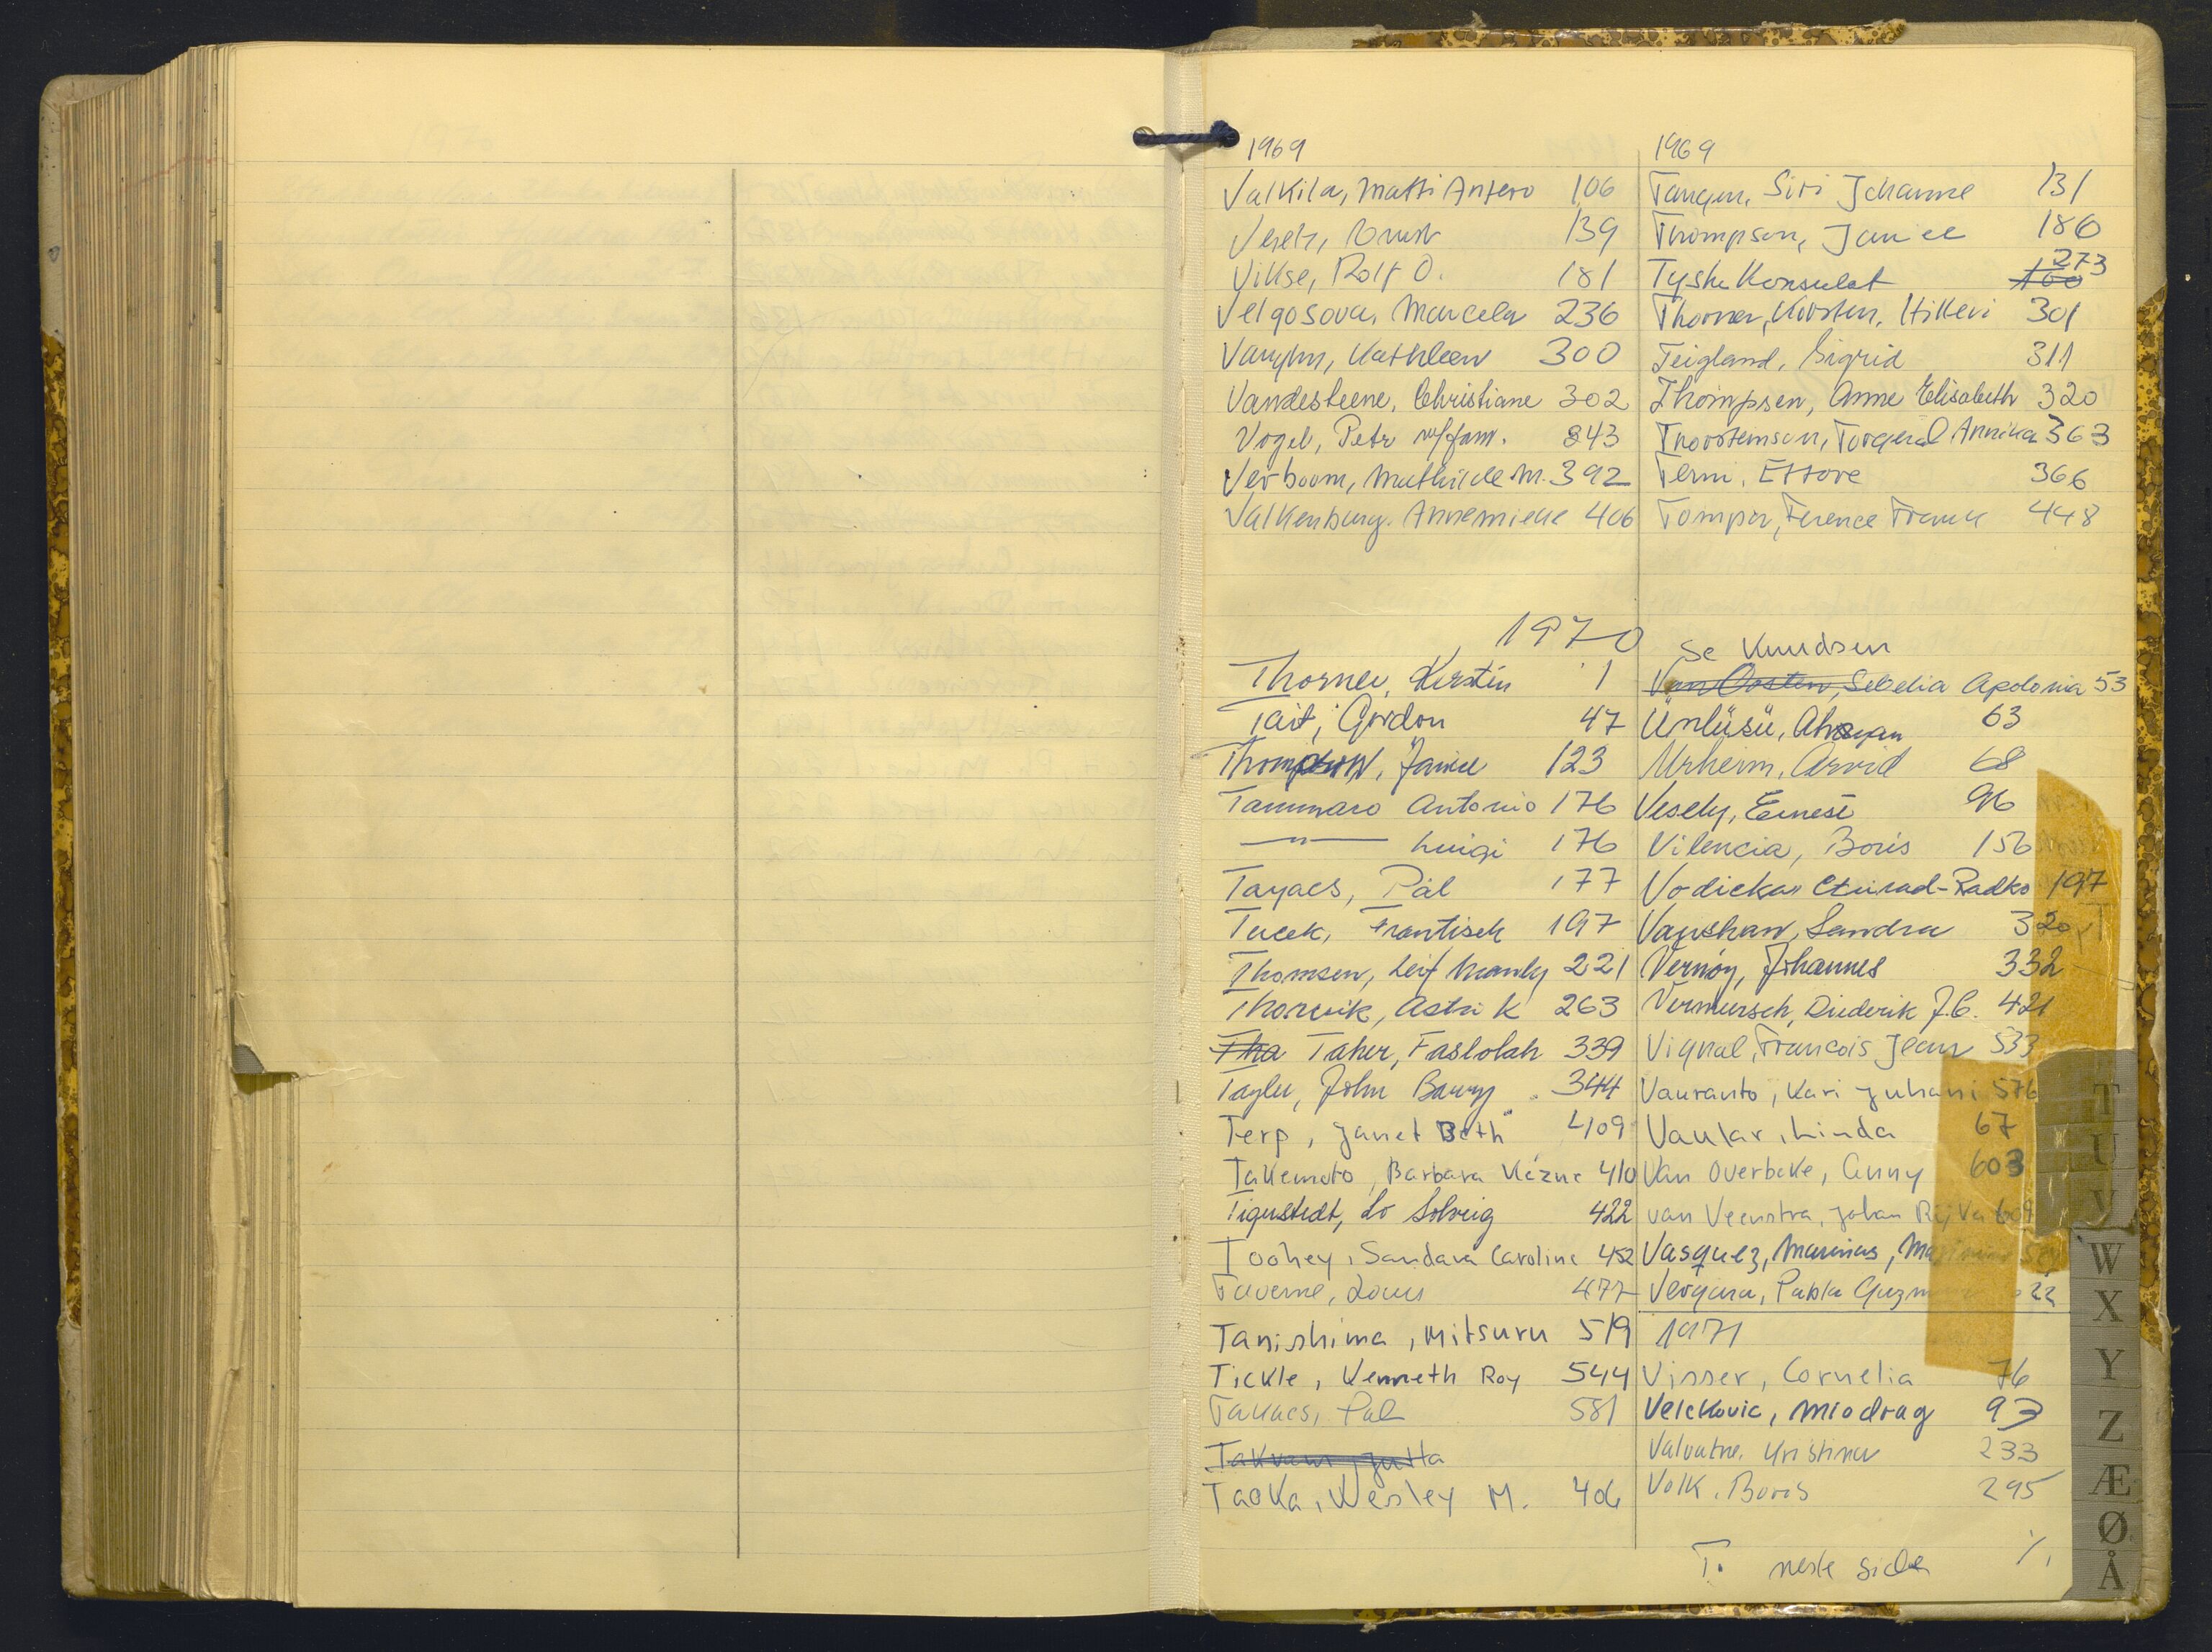 1969
Valkila, Matti Antero 106
139
Vikse, Rolf O. 181
Velgosova, Marcela 236
Vaughn, Kathleen 300
Vandesteene, Christiane 302
Vogel, Petr m/fam. 343
Verboom, Mathilde M. 392
Valkenburg. Annemieke 406
1969
Tangen, Siri Johanne 131
Thompson, Janice 186
Tyske Konsulat 100 273
Thorner, Kirsten, Hillevi 301
Teigland, Sigrid 311
Thompsen, Anne Elisabeth 320
Thorsteinson, Torgerd Annika 363
Termi, Ettore 366
Tompor, Ference Franck 448
1970
Thorner, Kerstin 1
Tait, Gordon 47
Thompson, Janice 123
Tammaro Antonio 176
—"— Luigi 176
Tayacs, Pál 177
Tucek, Frantisek 197
Thomsen, Leif Manly 221
Thorsvik, Astri K 263
Tha Taher, Faslolah 339
Tayler, John Barry 344
Terp, Janet Beth 409
Takemoto, Barbara 410
Tigerstedt, Lo Solveig 422
Toohey, Sandara Caroline 452
Taverne, Louis 477
Tanishima, Mitsuru 519
Tickle, Kenneth Roy 544
Takacs, Pal 581
Takvam, Jutta
Taoka, Wesley M. 406
Se Knudsen
Van Oosten, Sebelia Apolonia 53
Ünlüsü, 63
Urheim, Arvid 68
Vesely, Ernest 96
Vilencia, Boris 156
Vodicka, Ctirad-Radko 197
Vaushan, Sandra 320
Vernøy, Johannes 332
Vermersch, Diederik J.C. 421
Vignal, Francois Jean 533
Vauranto, Kari Juhani 576
Vaular, Linda 67
Van Overbeke, Anny 603
van Veenstra, Johan 609
Vasquez, Marinas,
Vergara, Pabla 22
1971
Visser, Cornelia 76
Velckovic, Miodrag 93
Valvatne, Kristina 233
Volk, Boris 295
T. neste side ./.
T
U
V
W
X
Y
Z
Æ
Ø
Å